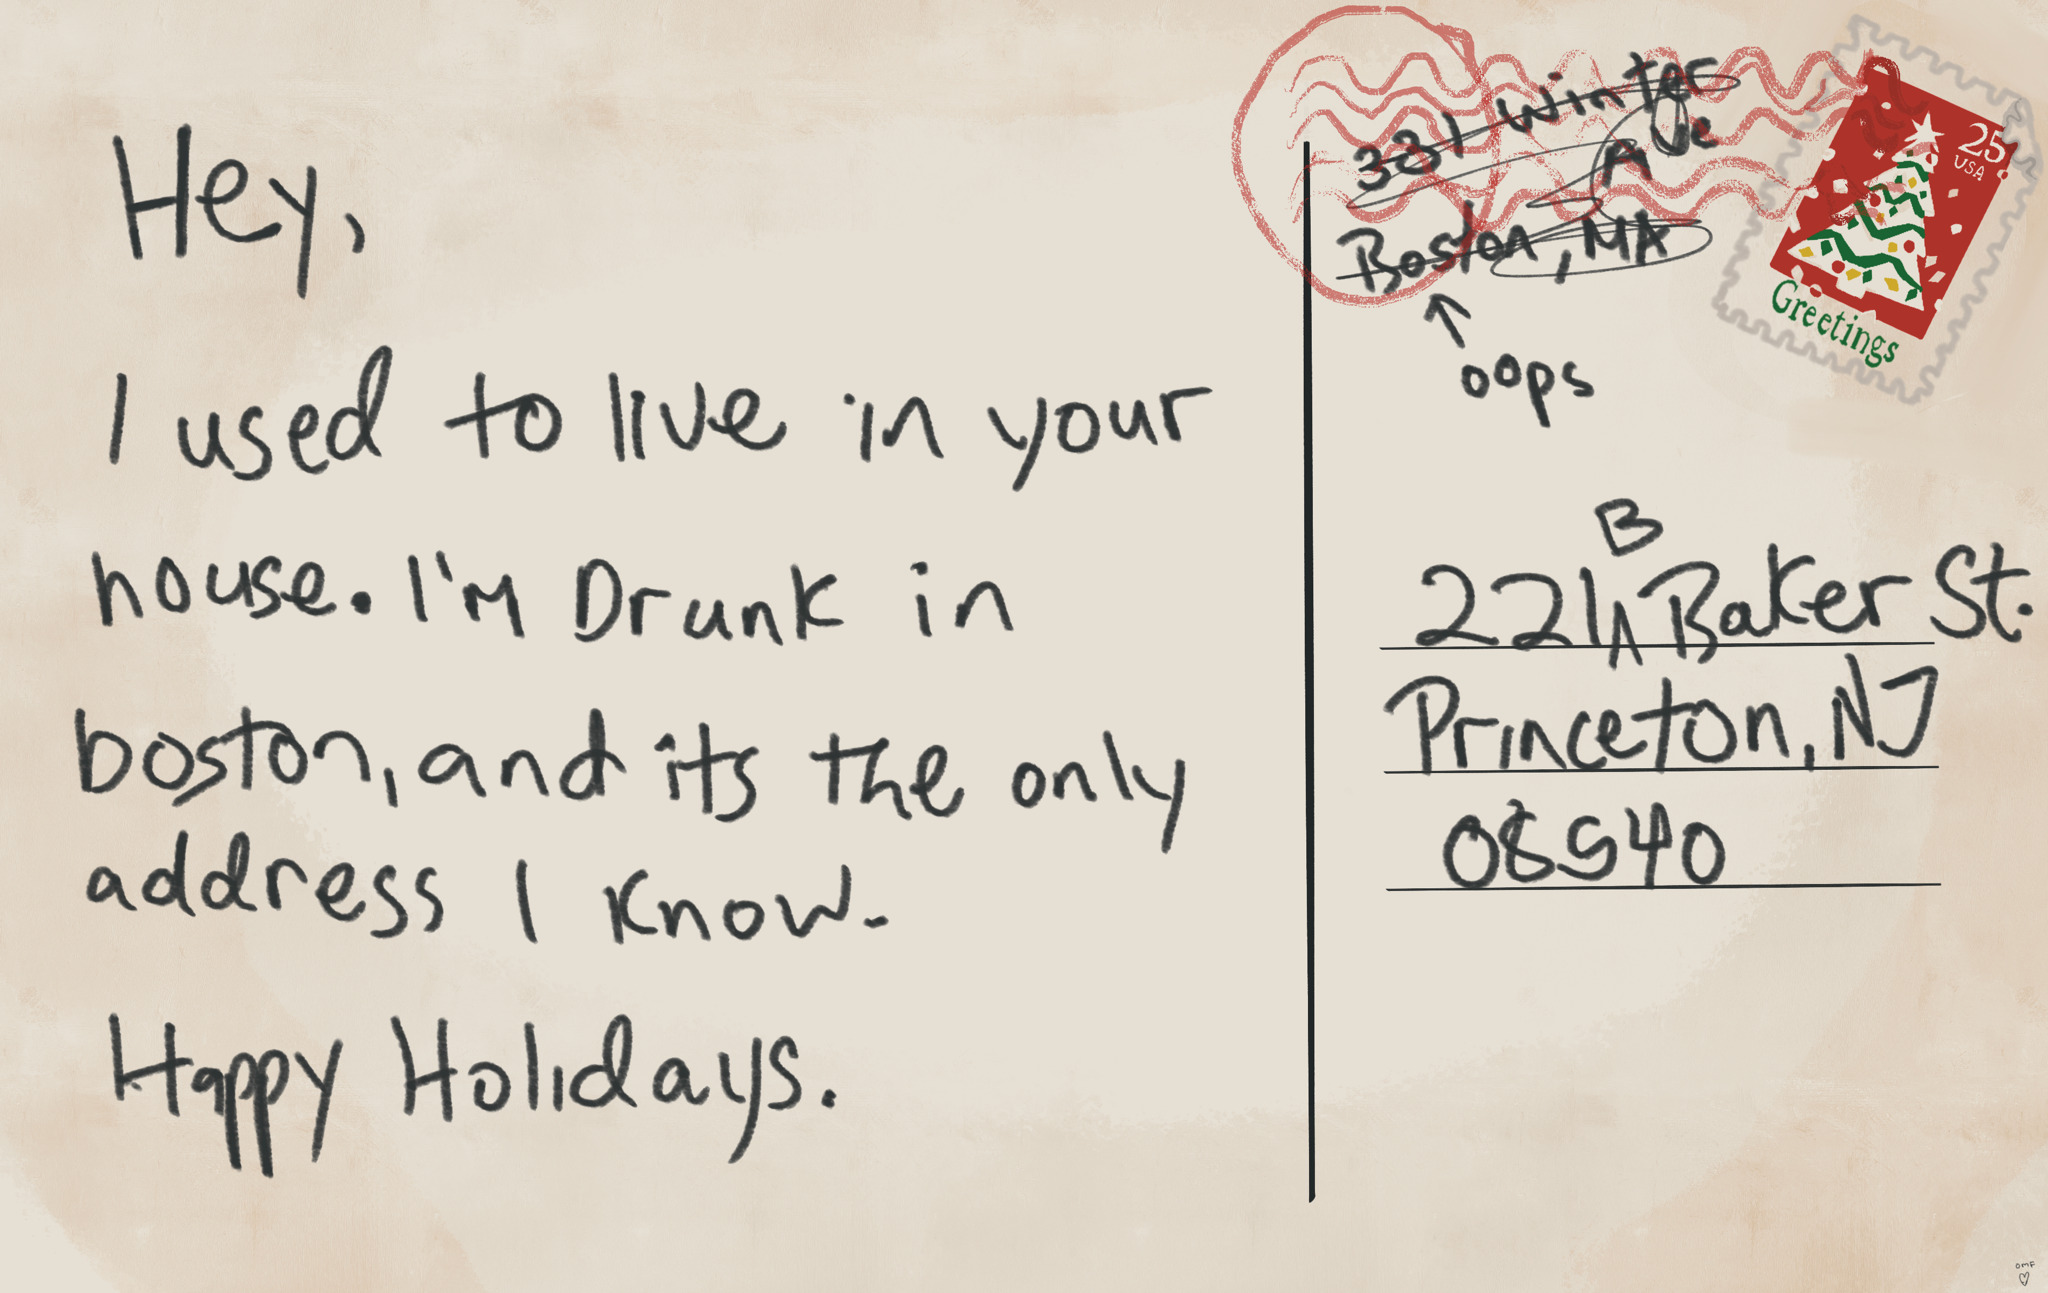 Hey,
I used to live in your
house. I'm Drunk in
boston, and its the only
address I know.
Happy Holidays.
331 Winter
Ave
Boston, MA
oops
25
USA
Greetings
B
221^ Baker St.
Princeton, NJ
08540
OMF